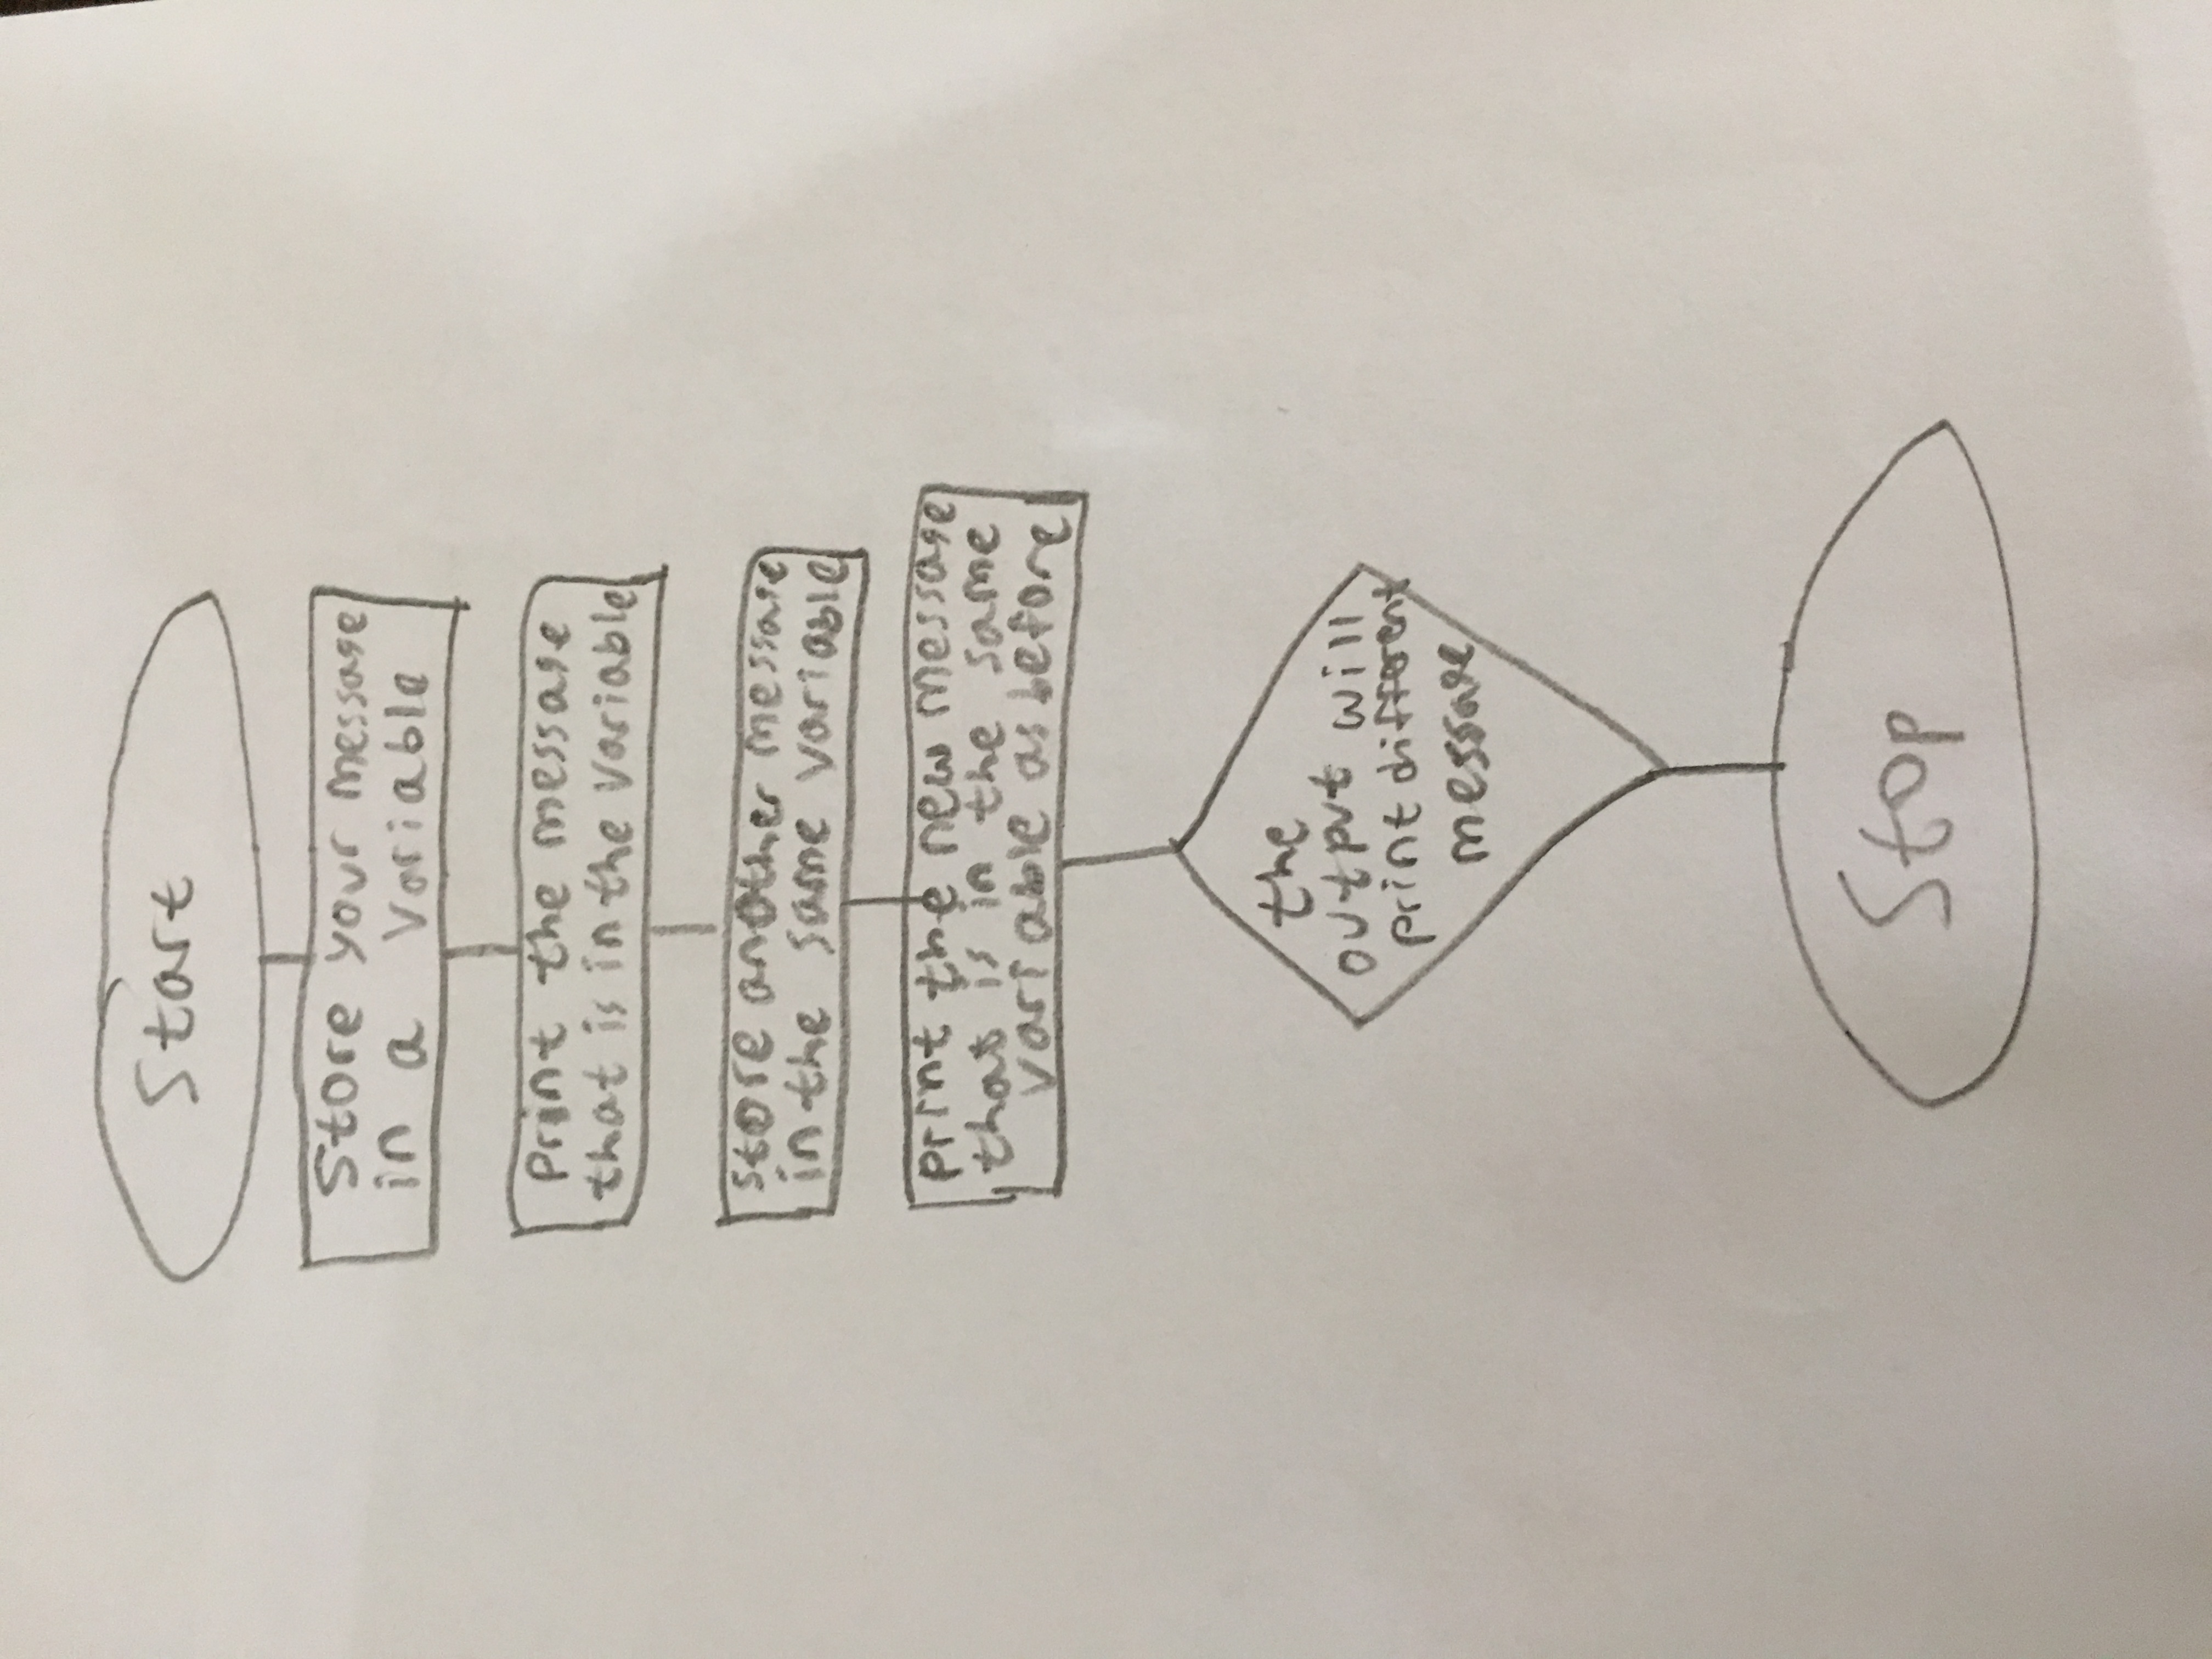 Start
Store your message
in a Variable
Print the message
that is in the Variable
store another message
in the same variable
print the new message
that is in the same
variable as before
the
output will
print different
message
Stop